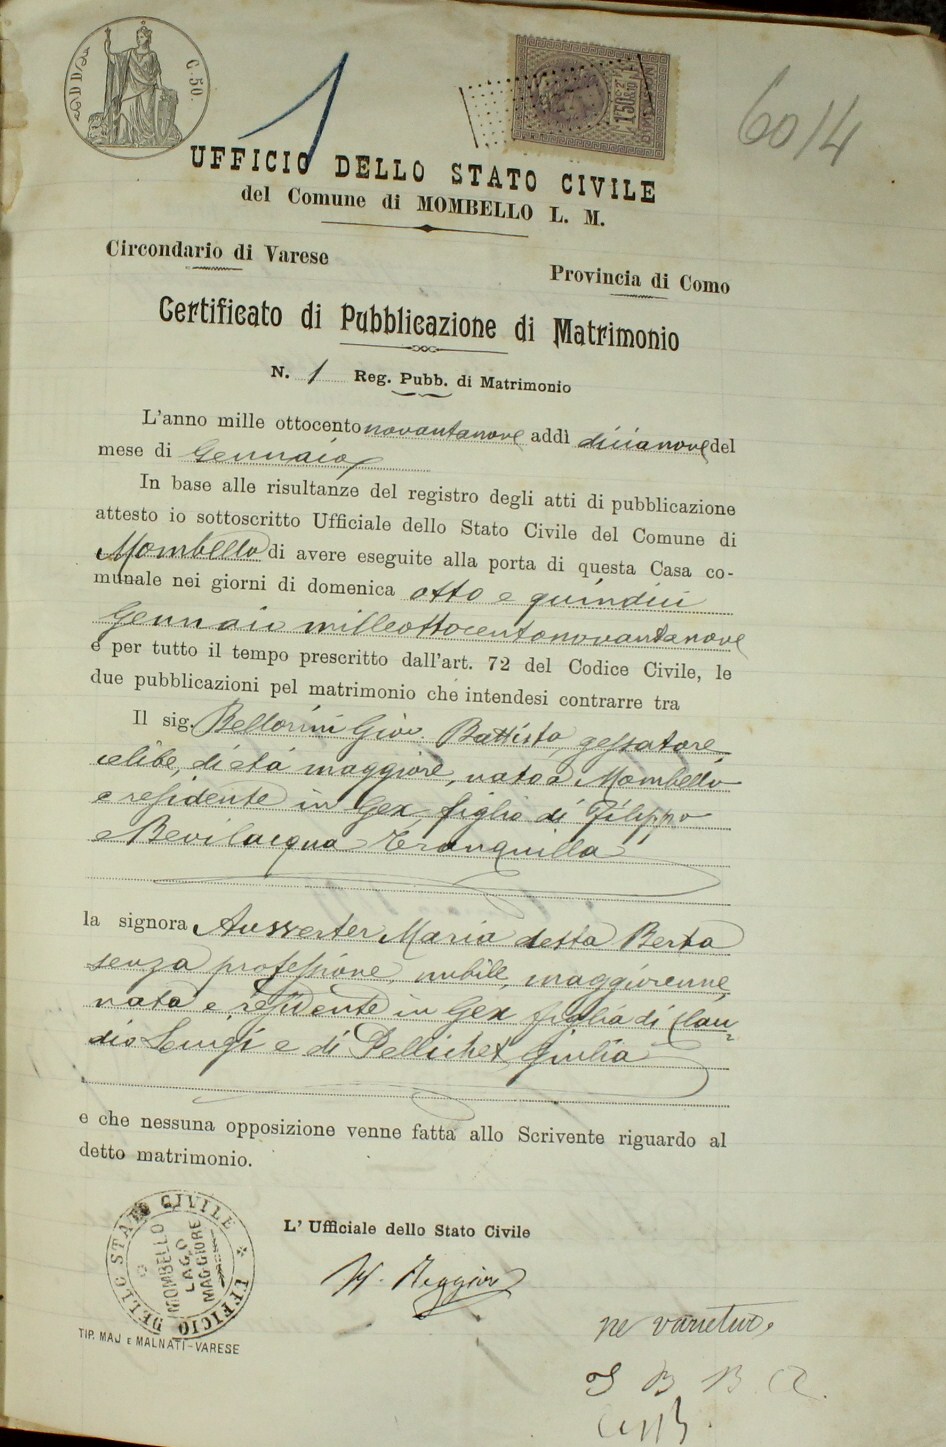 C. 50.
1
6014
UFFICIO DELLO STATO CIVILE
del Comune di MOMBELLO L. M.
Circondario di Varese
Provincia di Como
Certificato di Pubblicazione di Matrimonio
N. 1 Reg. Pubb. di Matrimonio
L'anno mille ottocento novantanove addì dicianove del
mese di Gennaio
In base alle risultanze del registro degli atti di pubblicazione
attesto io sottoscritto Ufficiale dello Stato Civile del Comune di
Mombello di avere eseguite alla porta di questa Casa co-
munale nei giorni di domenica otto e quindici
Gennaio milleottocentonovantanove
e per tutto il tempo prescritto dall'art. 72 del Codice Civile, le
due pubblicazioni pel matrimonio che intendesi contrarre tra
Il sig. Bellorini Giov. Battista, gessatore,
celibe, di età maggiore, nato a Mombello
e residente in Gex, figlio di Filippo
e Bevilacqua Tranquilla
la signora Ausserter Maria detta Berta
senza professione, nubile, maggiorenne,
nata e residente in Gex figlia di Clau=
dio Luigi e di Pellichet Giulia
e che nessuna opposizione venne fatta allo Scrivente riguardo al
detto matrimonio.
L' Ufficiale dello Stato Civile
UFFICIO DELLO STATO CIVILE
MOMBELLO
LAGO
MAGGIORE
TIP. MAJ E MALNATI-VARESE
ne varietur.
J B B A.